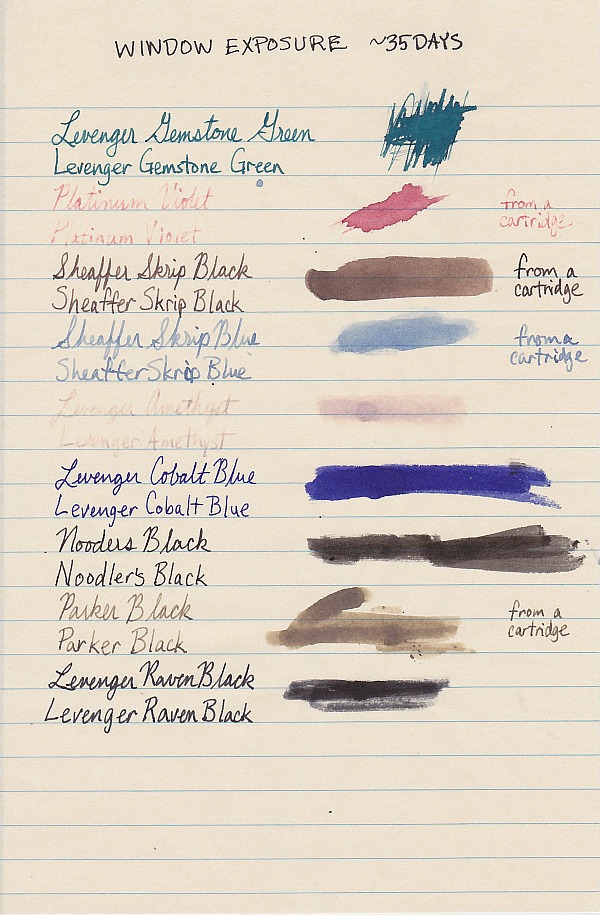 WINDOW EXPOSURE ~35 DAYS
Levenger Gemstone Green
Levenger Gemstone Green
Platinum Violet from a
Platinum Violet cartridge
Sheaffer Skrip Black from a
Sheaffer Skrip Black cartridge
Sheaffer Skrip Blue from a
Sheaffer Skrip Blue cartridge
Levenger Amethyst
Levenger Amethyst
Levenger Cobalt Blue
Levenger Cobalt Blue
Nooders Black
Noodler's Black
Parker Black from a
Parker Black cartridge
Levenger Raven Black
Levenger Raven Black